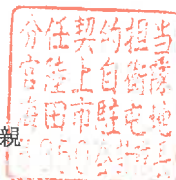 分任契約担当
官陸上自衛隊
海田市駐屯地
親